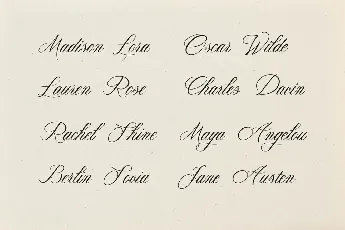 Madison Lora Oscar Wilde
Lauren Rose Charles Davin
Rachel Shine Maya Angelou
Bertin Sovia Jane Austen